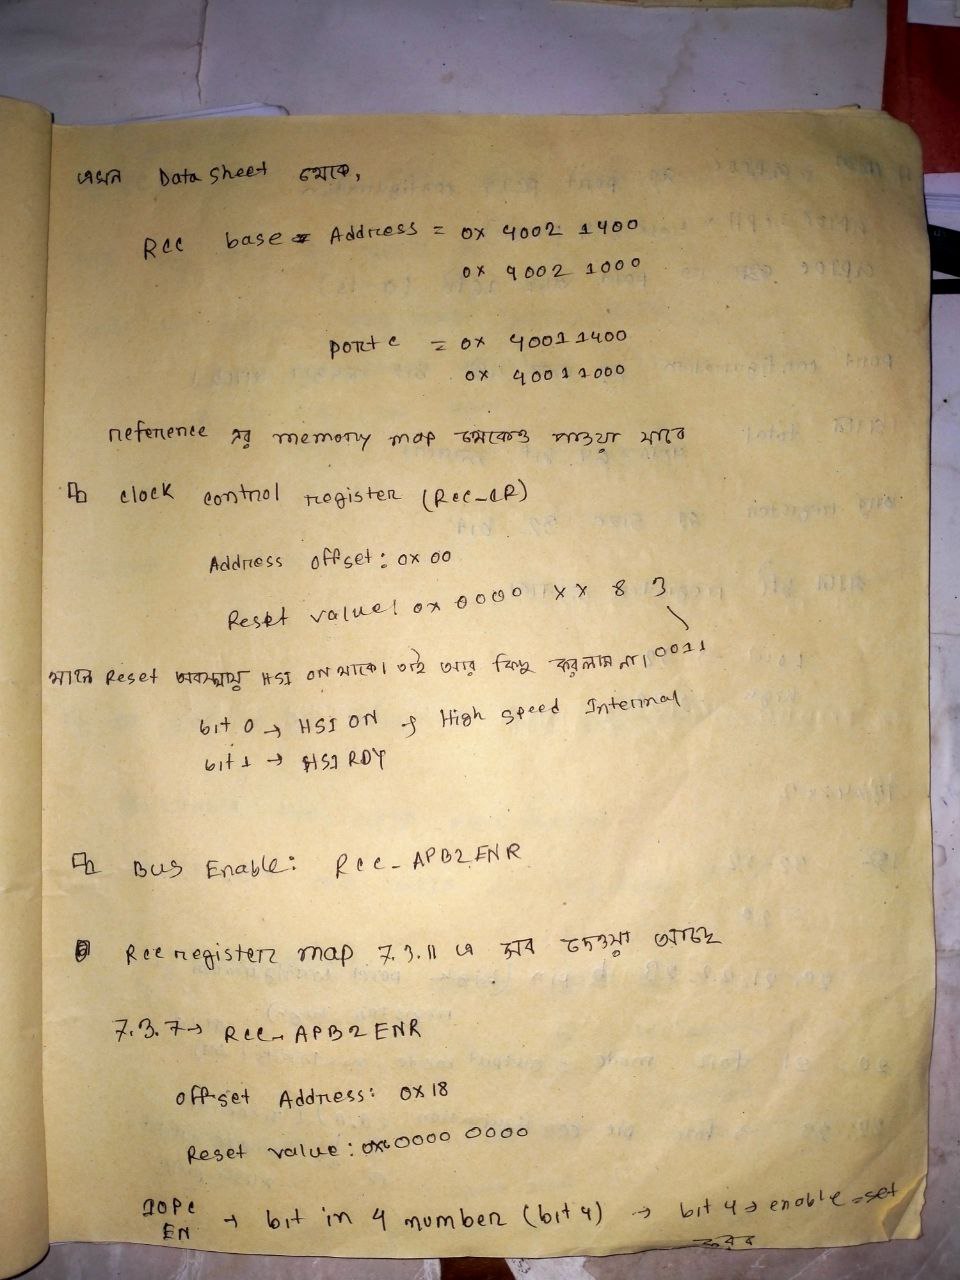 এখন Data sheet থেকে,
Rcc base Address = 0x 4002 1400
0x 4002 1000
port c = 0x 40011400
0x 40011000
reference এর memory map থেকেও পাওয়া যাবে
clock control register (Rcc_CR)
Address offset: 0x 00
Reset value: 0x 0000 xx 8 3
0011
মানে Reset অবস্থায় HSI ON থাকে। তাই আর কিছু করলাম না।
bit 0 → HSI ON → High speed Internal
bit 1 → HSI RDY
Bus Enable: Rcc_APB2ENR
Rcc register map 7.3.11 এ সব দেওয়া আছে
7.3.7 → Rcc_APB2ENR
offset Address: 0x18
Reset value: 0x0000 0000
IOPC
EN → bit in 4 number (bit 4) → bit 4 → enable = set
করব